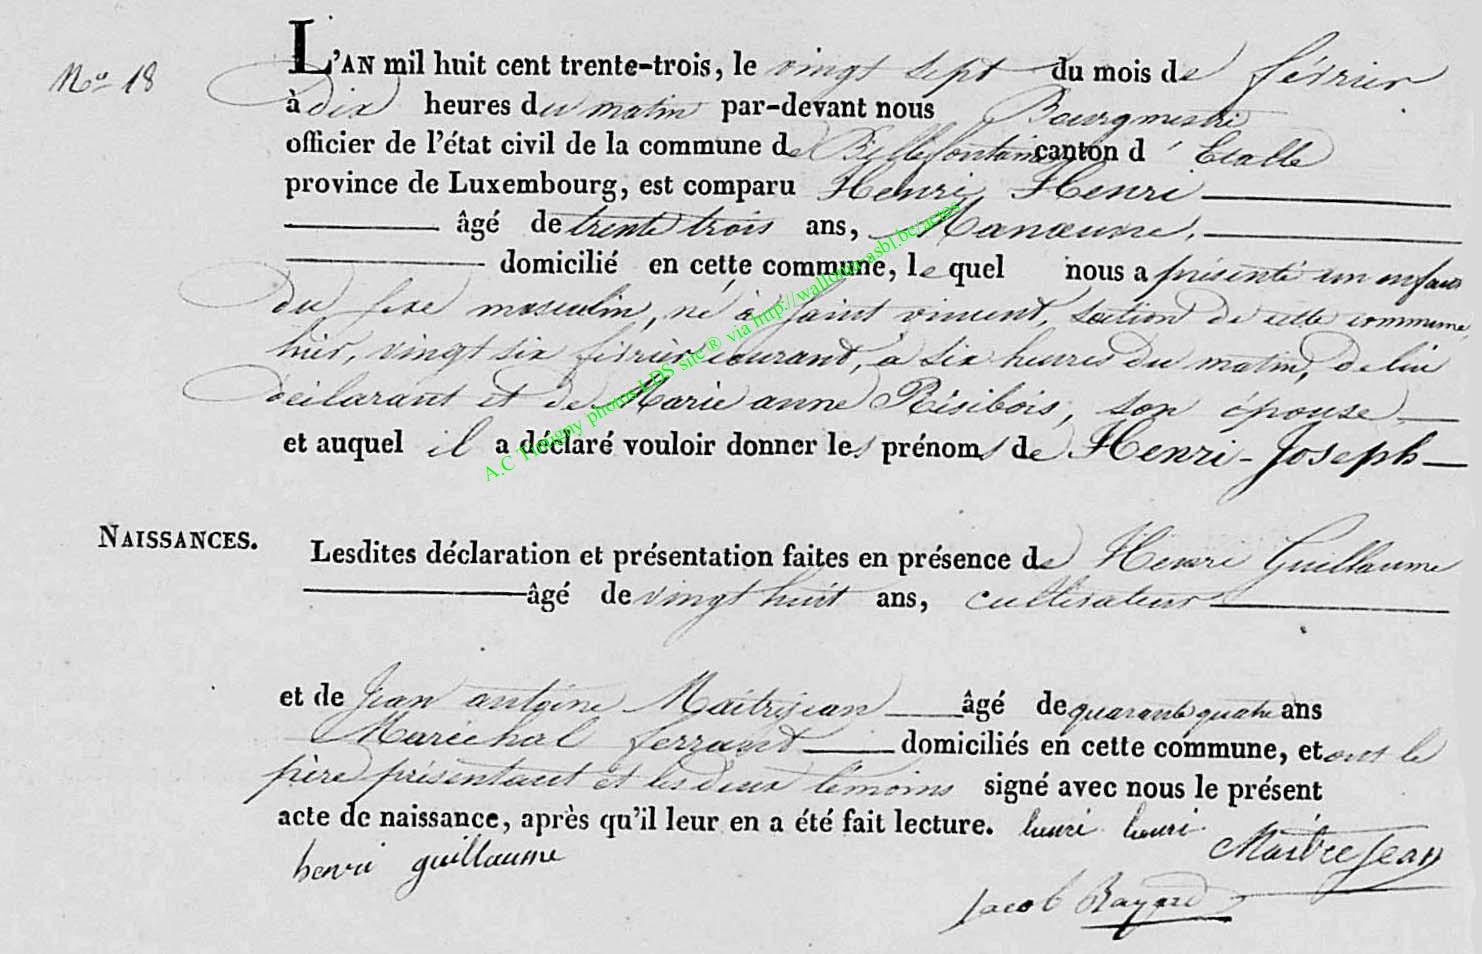 No 18
L'AN mil huit cent trente-trois, le vingt sept du mois de février
à dix heures du matin par-devant nous Bourgmestre
officier de l'état civil de la commune de Bellefontaine canton d'Etalle
province de Luxembourg, est comparu Henri Henri
âgé de trente trois ans, Manœuvre,
domicilié en cette commune, lequel nous a présenté un enfant
du sexe masculin, né à Saint vincent, section de cette commune,
hier, vingt six février courant, à six heures du matin, de lui
déclarant et de Marie anne Résibois, son épouse
et auquel il a déclaré vouloir donner les prénoms de Henri-Joseph
NAISSANCES.
Lesdites déclaration et présentation faites en présence de Henri Guillaume
âgé de vingt huit ans, cultivateur
et de Jean antoine Maitrejean âgé de quarante quatre ans
Maréchal ferrant domiciliés en cette commune, et ont le
père présentant et les deux témoins signé avec nous le présent
acte de naissance, après qu'il leur en a été fait lecture. henri henri
henri guillaume MaitreJean
Jacob
A.C Tintigny photos LDS site ® via http://wallonia-asbl.be/actes